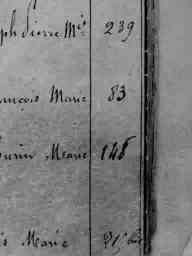 ph pierre Mie 239
ançois Marie 83
urin Marie 148
s Marie